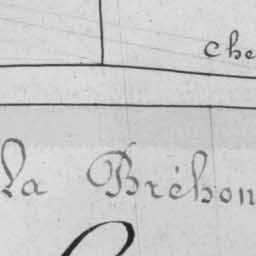 che
la Bréhon